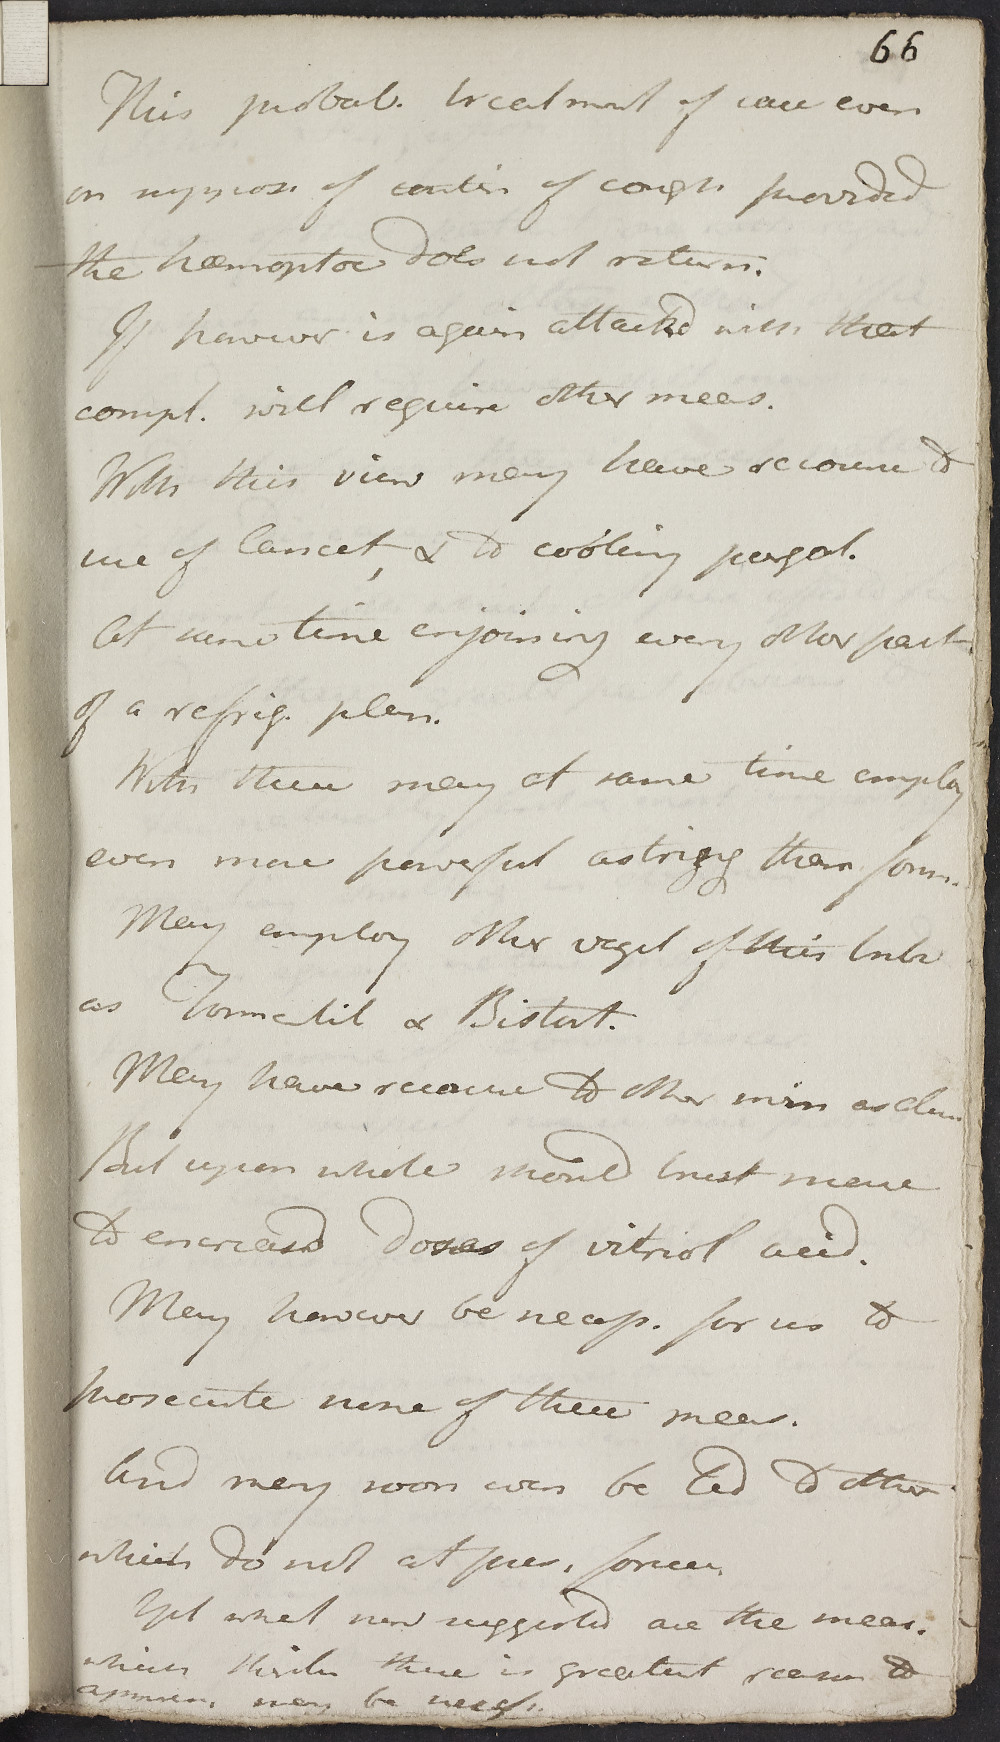 66
This probab. treatment of case even
on suppos. of contin of cough provided
the hæmoptoe does not return.
If however is again attacked with that
compt. will require other meas.
With this view may have recourse to
use of Lancet, & to cooling purgat.
At same time enjoining every other part
of a refrig. plan.
With these may at same time employ
even more powerful astring than form.
May employ other veget of this tribe
as Tormentil & Bistort.
May have recourse to other min as alum
But upon whole should trust more
to encreased doses of vitriol acid.
May however be necess. for us to
prosecute none of these meas.
And may soon even be led to other
which do not at pres. foresee
Yet what now suggested are the meas.
which think there is greatest reason to
may be necess.